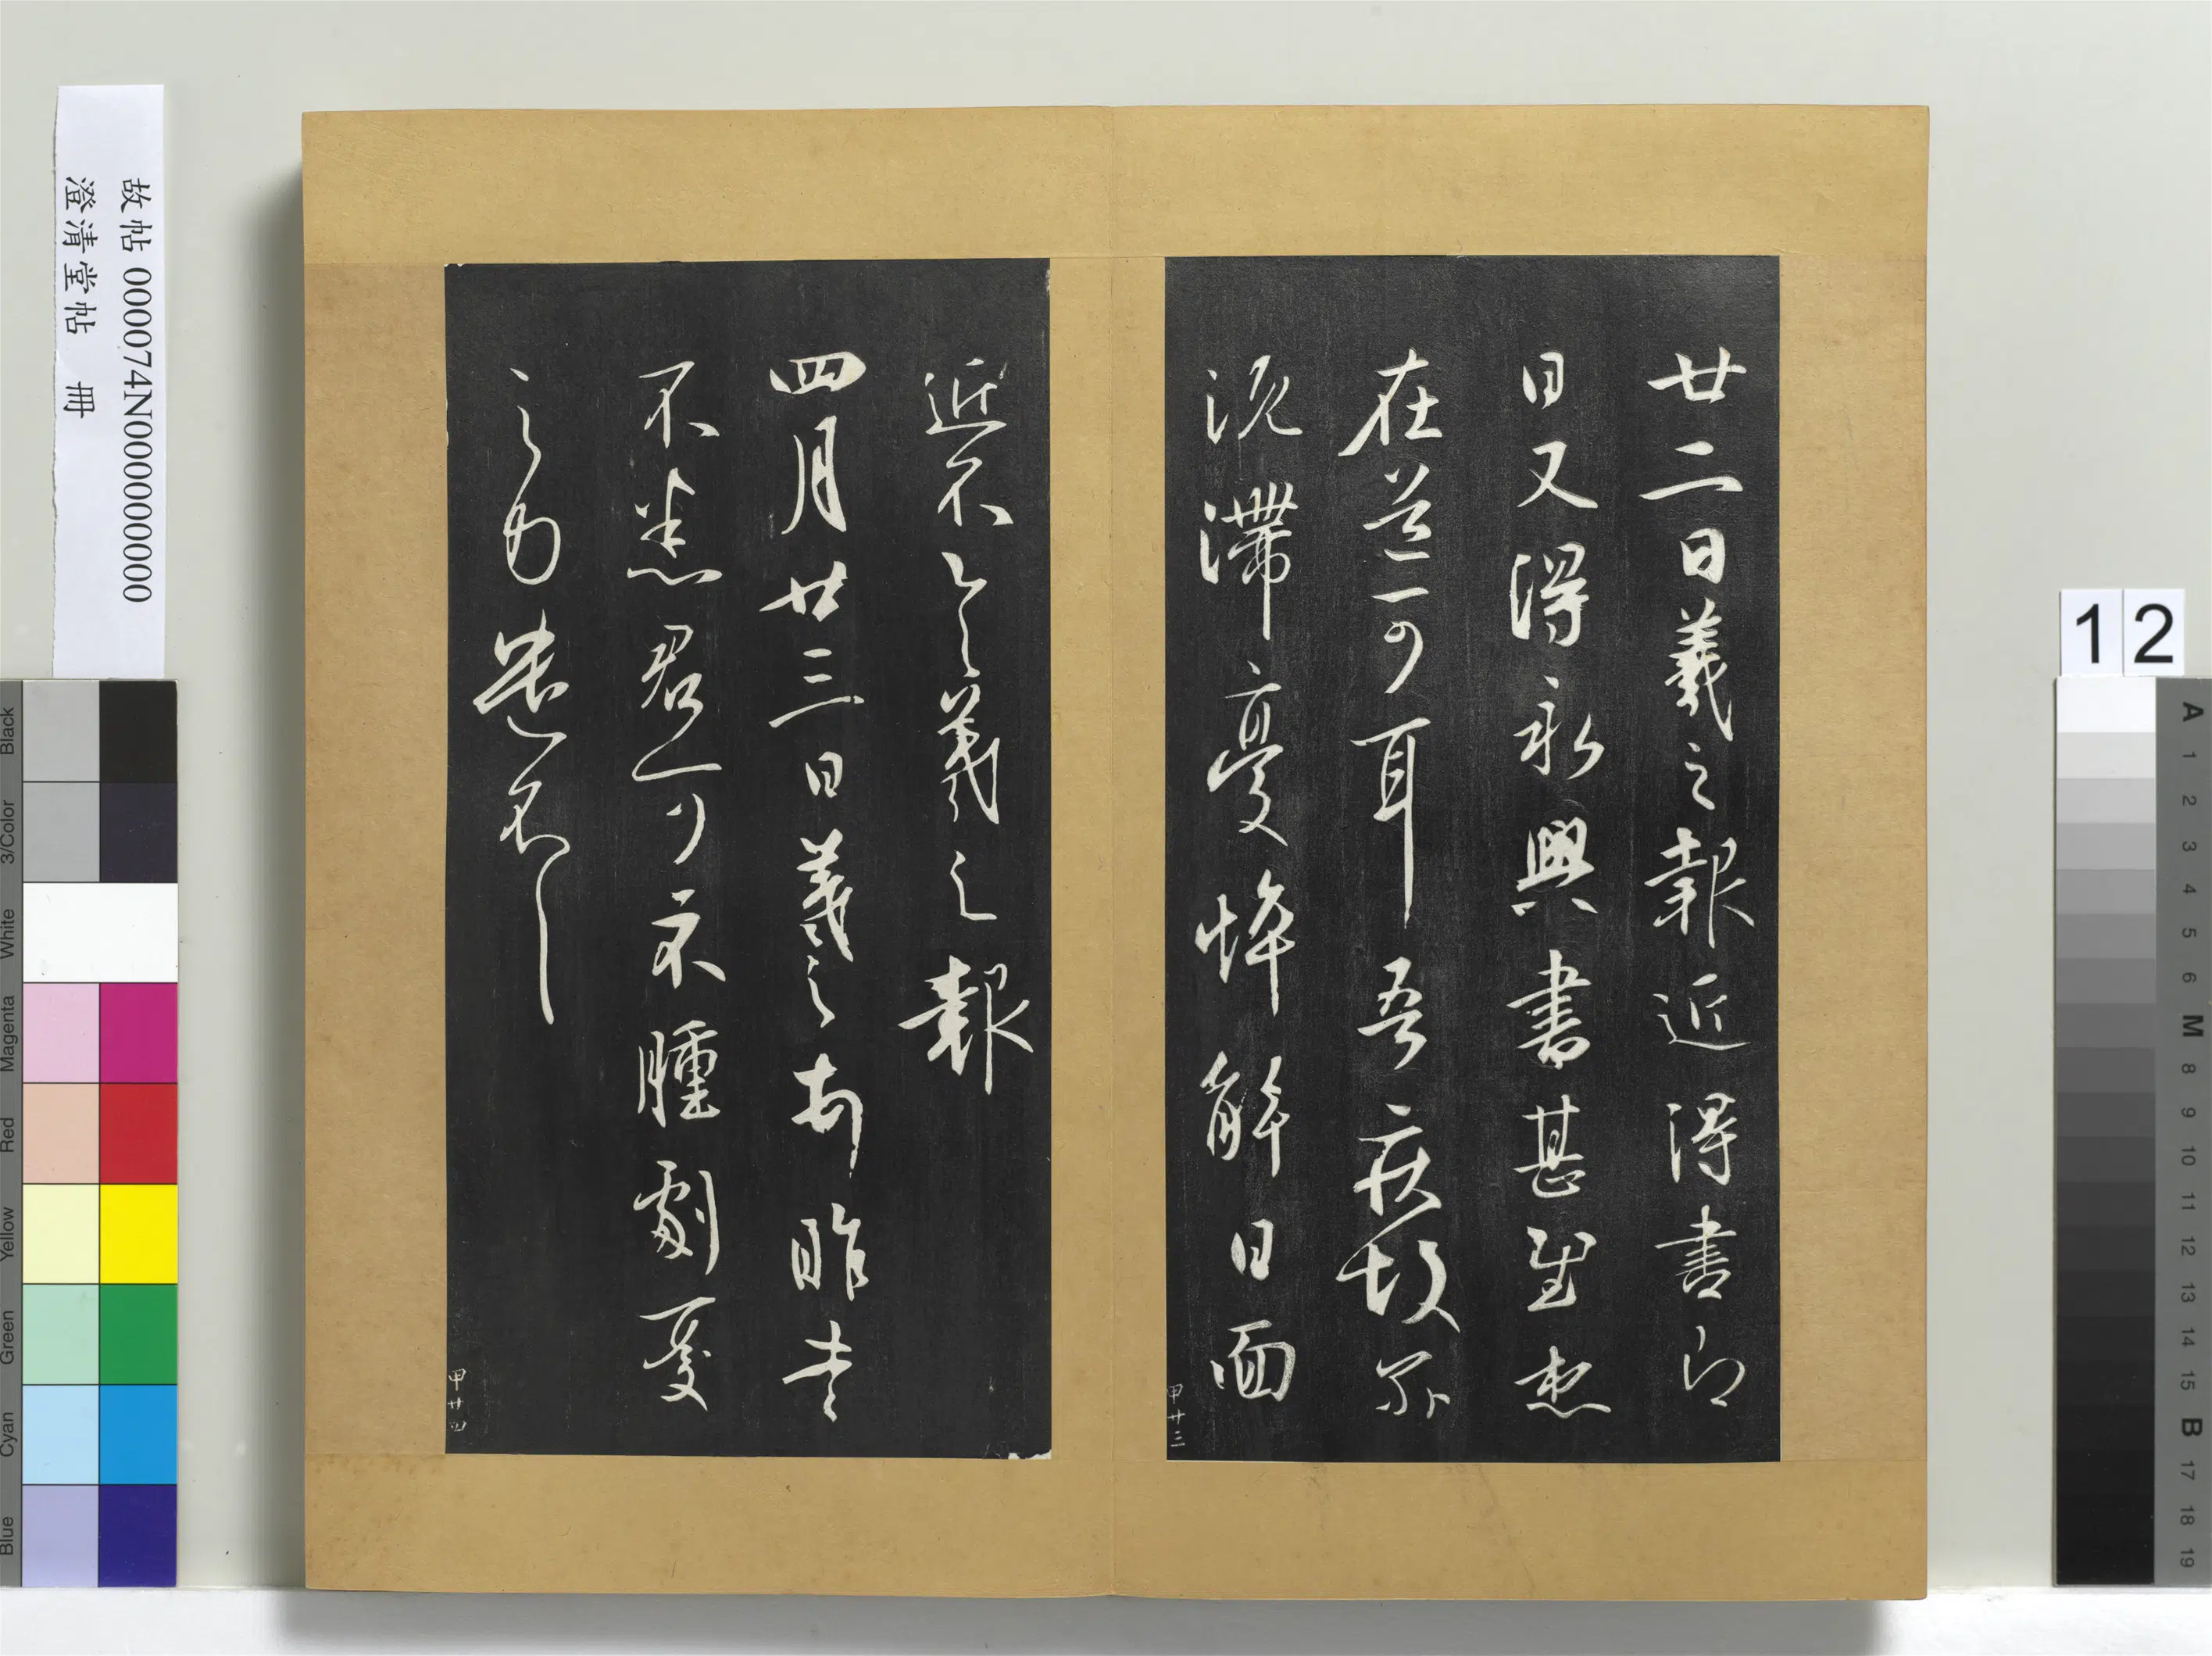 廿二日羲之報近得書即
日又得永興書甚慰想
在道可耳吾疾故爾
沈滯憂悴解日面
近不具羲之報
四月廿三日羲之頓首昨書
不悉君可不腫劇憂
之力遣不
甲廿三
甲廿四
故帖 000074N000000000
澄清堂帖 冊
12
Black
3/Color
White
Magenta
Red
Yellow
Green
Cyan
Blue
A
1
2
3
4
5
6
M
8
9
10
11
12
13
14
15
B
17
18
19